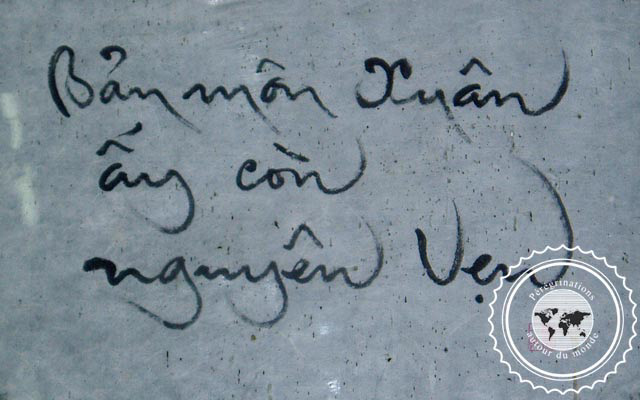 Bản môn Xuân
ấy còn
nguyên vẹn
Pérégrinations
autour du monde